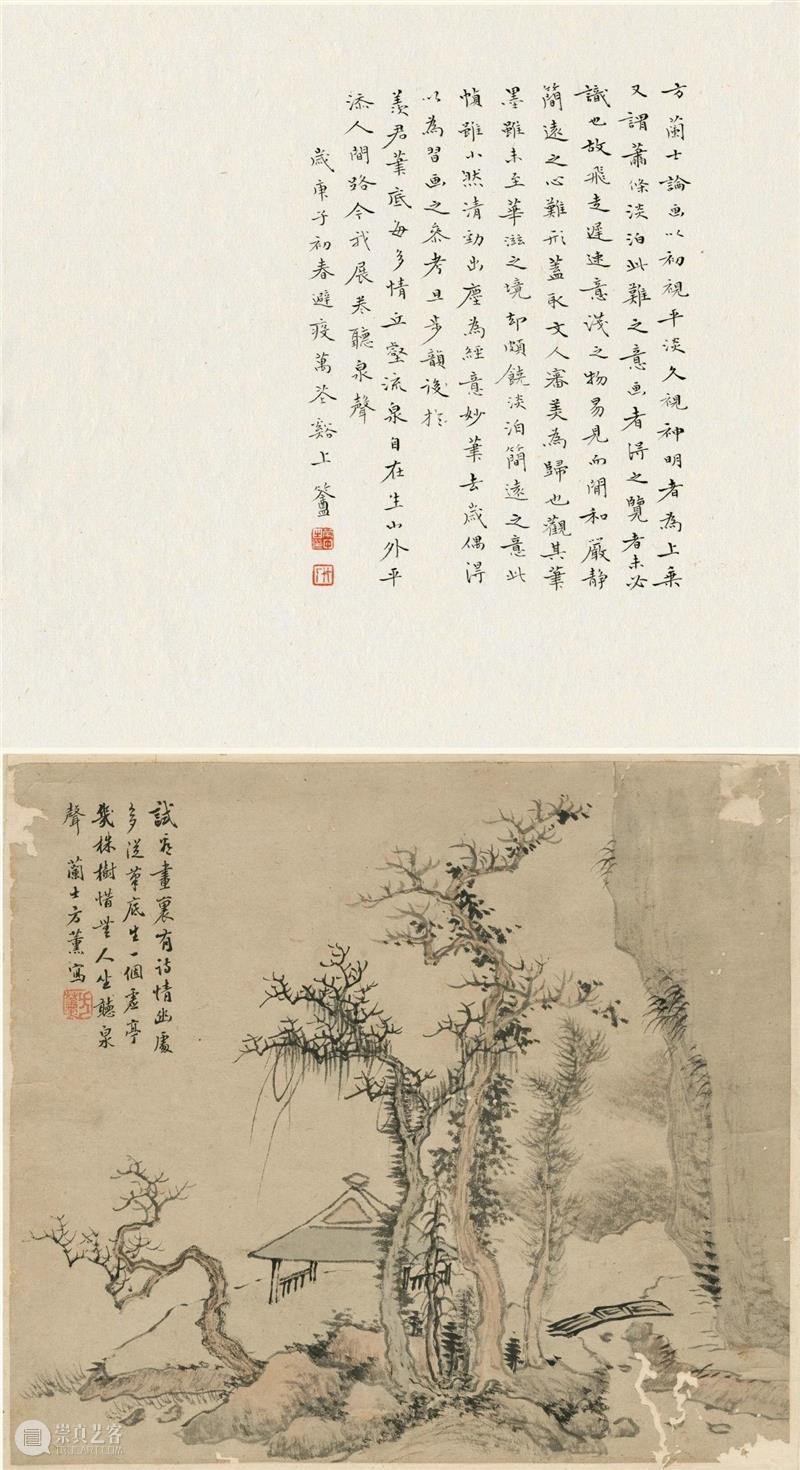 方蘭士論画以初視平淡久視神明者為上乗
又謂蕭條淡泊此難之意画者淂之覽者未必
識也故飛走遲速意淺之物易見而閒和嚴静
簡遠之心難形蓋取文人審美為歸也觀其筆
墨雖未至華滋之境却頗饒淡泊簡遠之意此
幀雖小然清勁出塵為經意妙筆去歲偶淂
以為習画之叅考且步韻後於
羨君筆底每多情丘壑流泉自在生山外平
添人間路令我展卷聽泉聲
歲庚子初春避疫萬谿上
試看畫裏有詩情幽處
多從筆底生一個虛亭
幾株樹惜無人坐聽泉
聲 蘭士方薰寫
崇真艺客